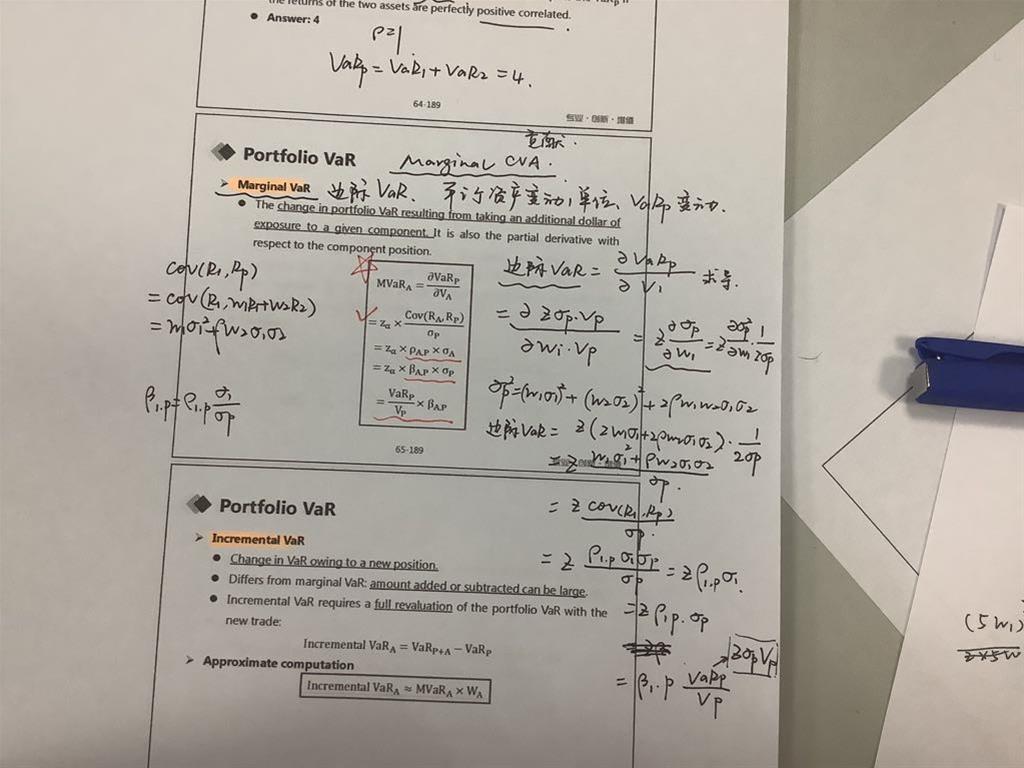 the returns of the two assets are perfectly positive correlated.
Answer: 4
ρ=1
VaRp = VaR1 + VaR2 = 4.
64-189
专业·创新·增值
Portfolio VaR
Marginal CVA.
Marginal VaR 边际 VaR. 资产变动1单位, VaRp 变动.
The change in portfolio VaR resulting from taking an additional dollar of
exposure to a given component. It is also the partial derivative with
respect to the component position.
MVaR_A = ∂VaR_P / ∂V_A
= z_α × Cov(R_A, R_P) / σ_P
= z_α × ρ_A,P × σ_A
= z_α × β_A,P × σ_P
= VaR_P / V_P × β_A,P
cov(R1, Rp)
= cov(R1, w1R1+w2R2)
= w1σ1²+ρw2σ1σ2
β1.p = ρ1.p σ1/σp
边际 VaR = ∂VaRp / ∂V1 求导.
= ∂zσp·Vp / ∂wi·Vp = z ∂σp/∂w1 = z ∂σp²/∂w1 · 1/2σp
σp² = (w1σ1)² + (w2σ2)² + 2ρw1w2σ1σ2
边际 VaR = z(2w1σ1²+2ρw2σ1σ2) · 1/2σp
= z w1σ1² + ρw2σ1σ2 / σp.
65-189
= z cov(R1, Rp) / σp.
= z ρ1.p σ1σp / σp = z ρ1.p σ1.
= z β1.p. σp
zσpVp
= β1.p VaRp / Vp
Portfolio VaR
Incremental VaR
Change in VaR owing to a new position.
Differs from marginal VaR: amount added or subtracted can be large.
Incremental VaR requires a full revaluation of the portfolio VaR with the
new trade:
Incremental VaR_A = VaR_P+A − VaR_P
Approximate computation
Incremental VaR_A ≈ MVaR_A × W_A
(5w1)